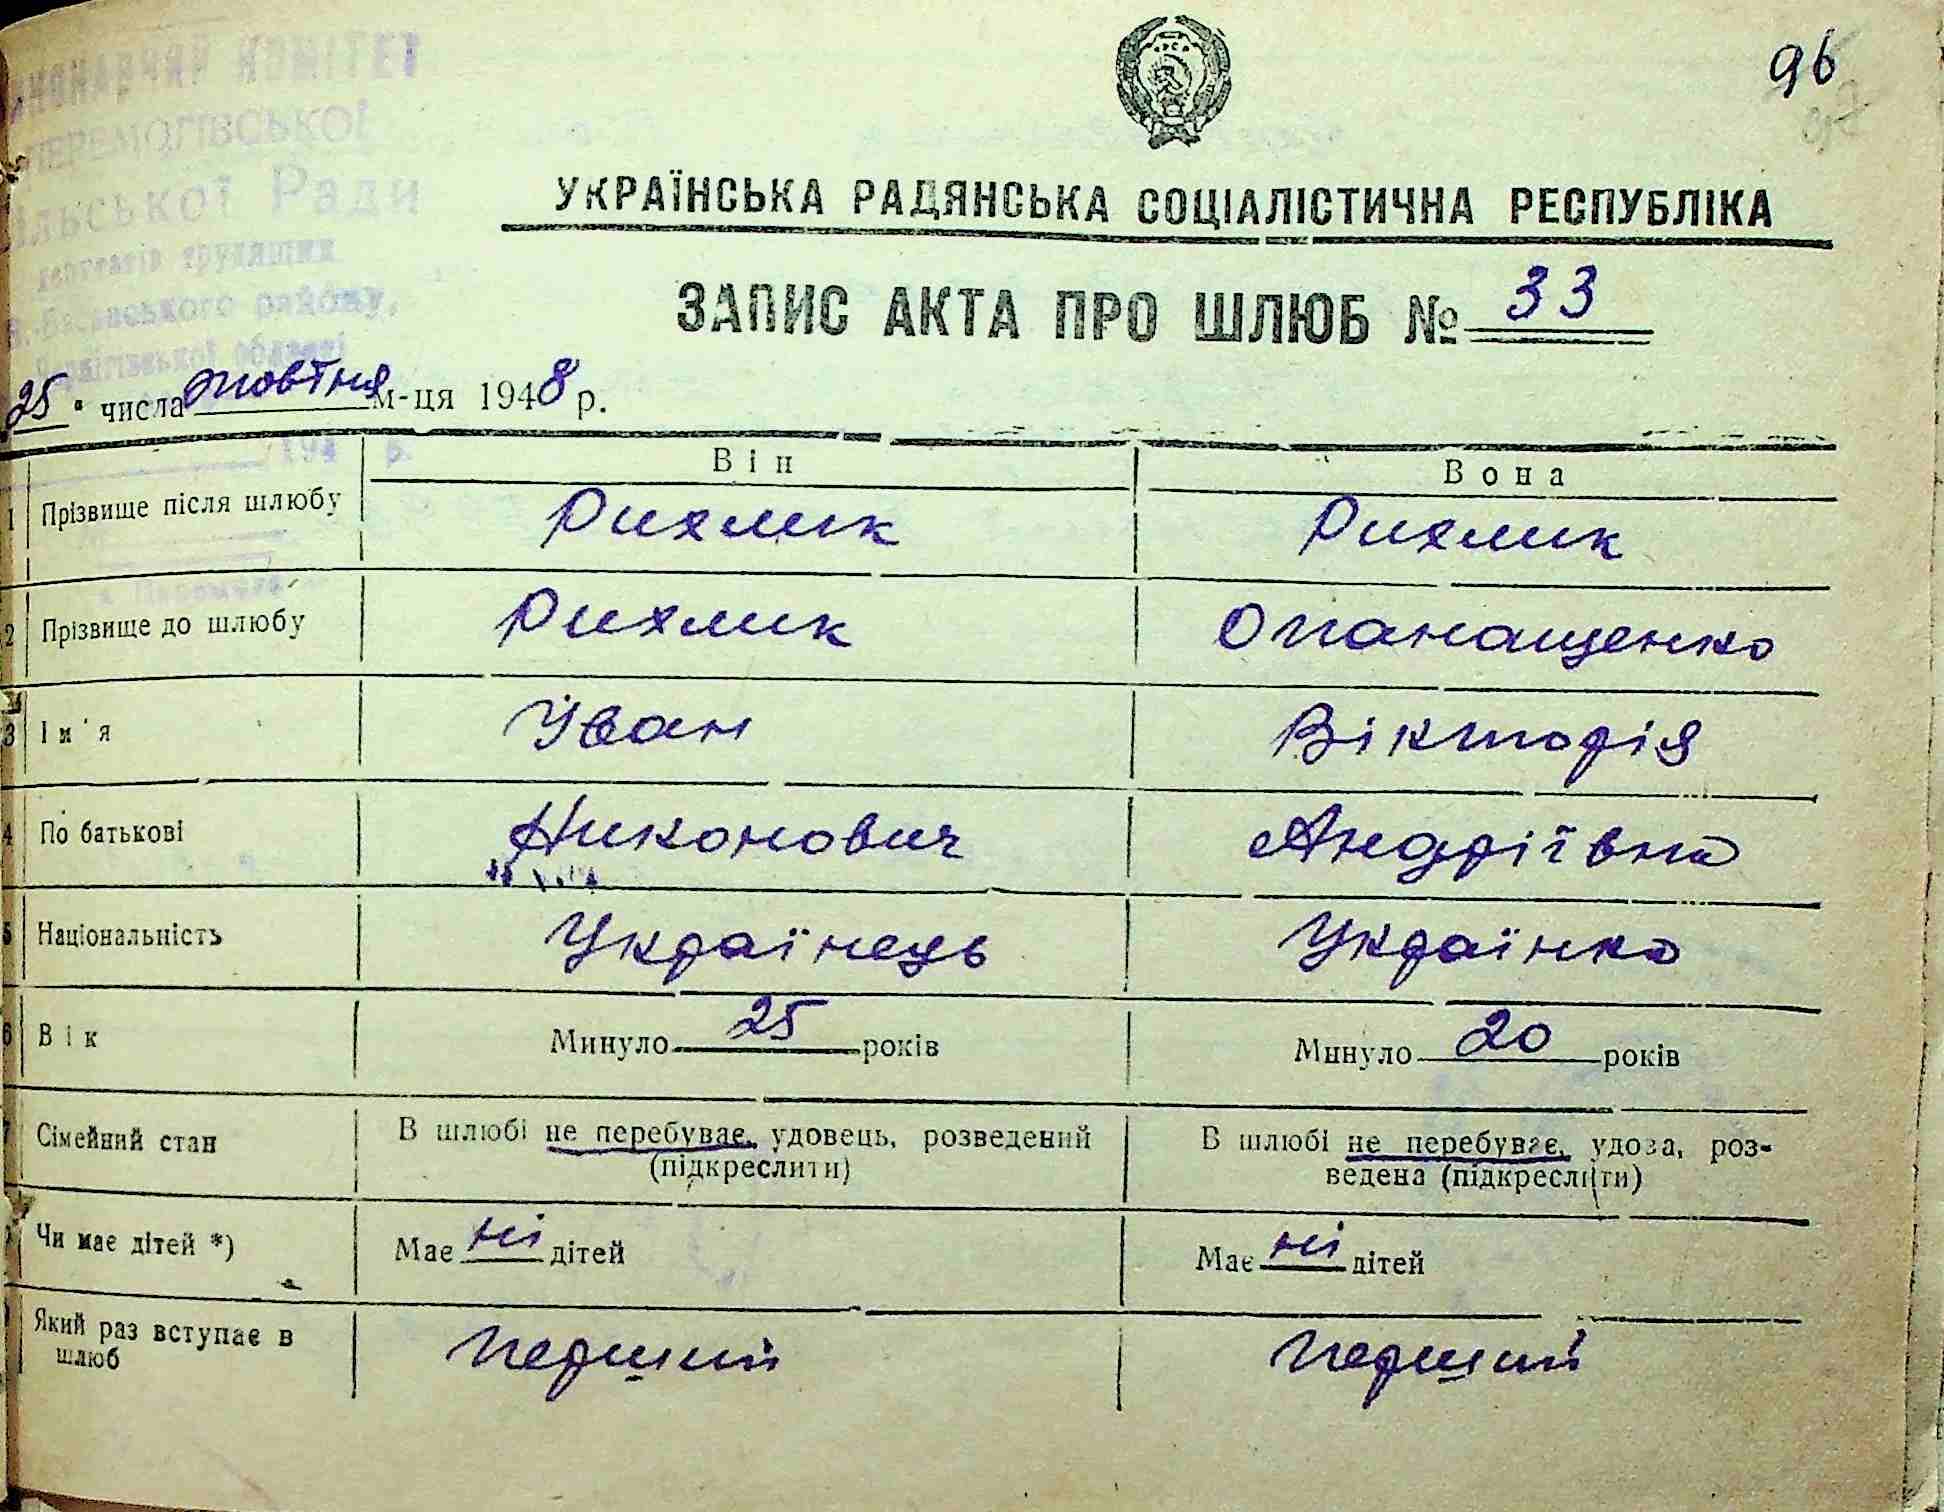 КОМІТЕТ
ПЕРЕМОГІВСЬКОЇ
Ради
депутатів трудящих
району,
області
96
УКРАЇНСЬКА РАДЯНСЬКА СОЦІАЛІСТИЧНА РЕСПУБЛІКА
ЗАПИС АКТА ПРО ШЛЮБ № 33
25 числа жовтня м-ця 1948 р.
194 р.
Він Вона
1 Прізвище після шлюбу Рихлик Рихлик
2 Прізвище до шлюбу Рихлик Опанащенко
3 Ім'я Іван Вікторія
4 По батькові Никонович Андріївна
5 Національність Українець Українка
6 Вік Минуло 25 років Минуло 20 років
7 Сімейний стан В шлюбі не перебуває, удовець, розведений (підкреслити) В шлюбі не перебуває, удова, роз-
ведена (підкреслити)
Чи має дітей *) Має ні дітей Має ні дітей
Який раз вступає в шлюб перший перший